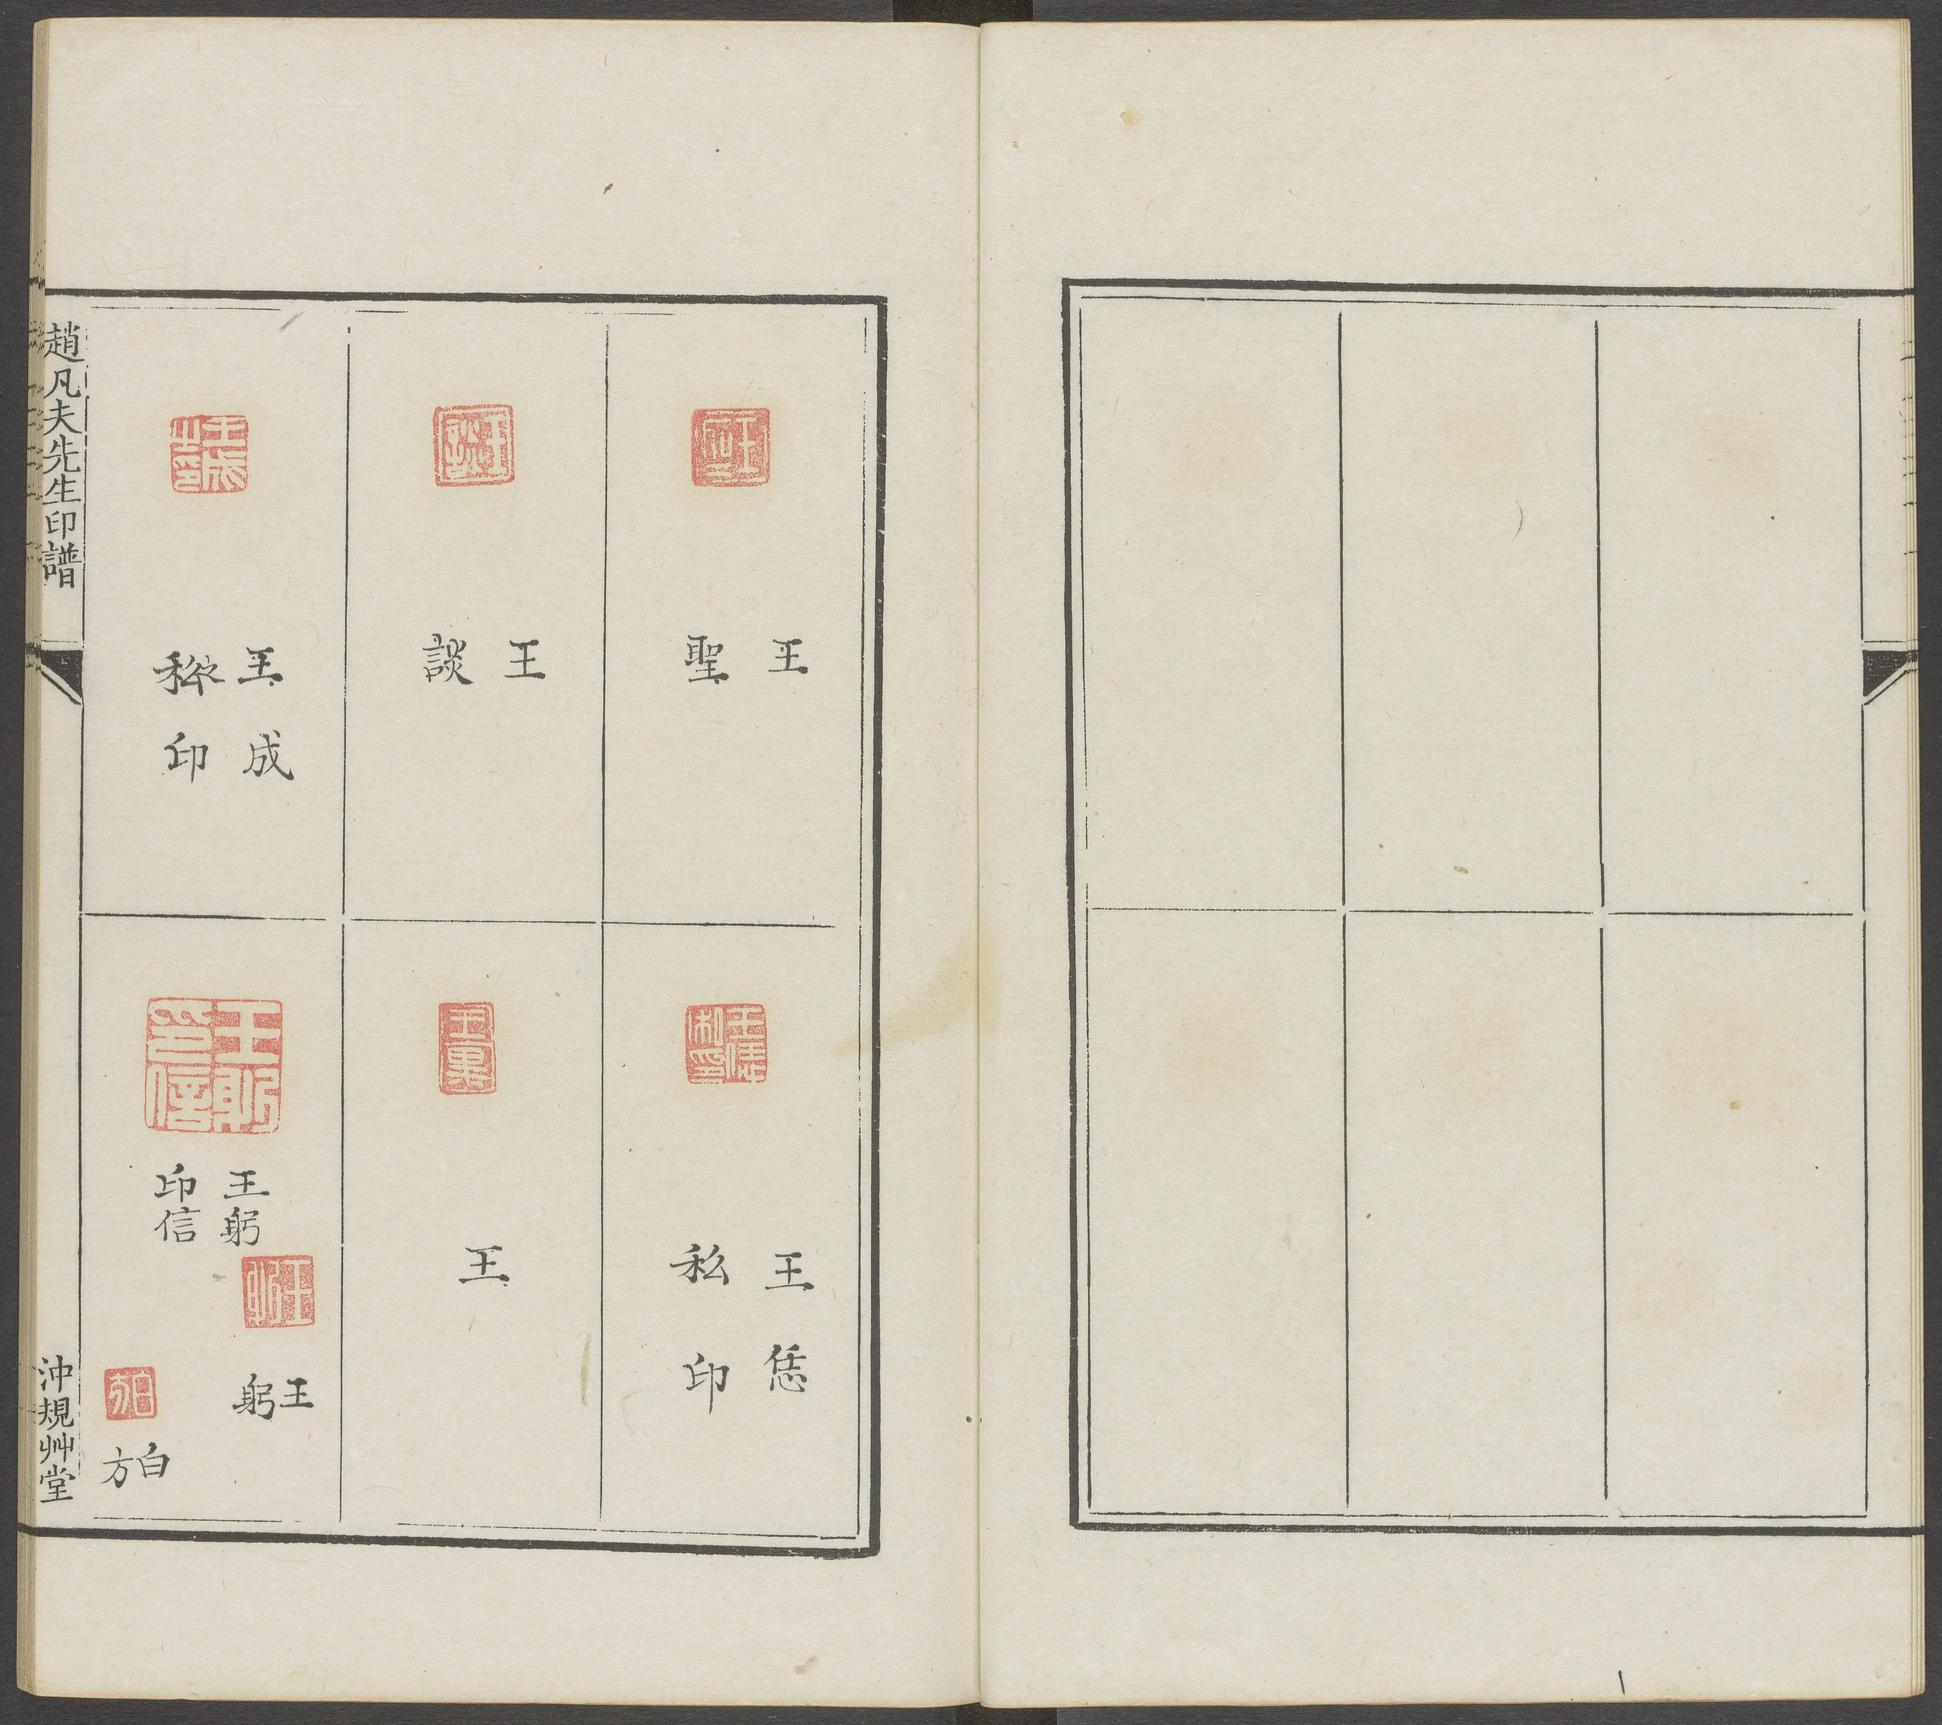 王
聖
王
談
王成
印
王恁
私印
王
王躬
印信
王
躬
白
方
趙凡夫先生印譜
沖規艸堂